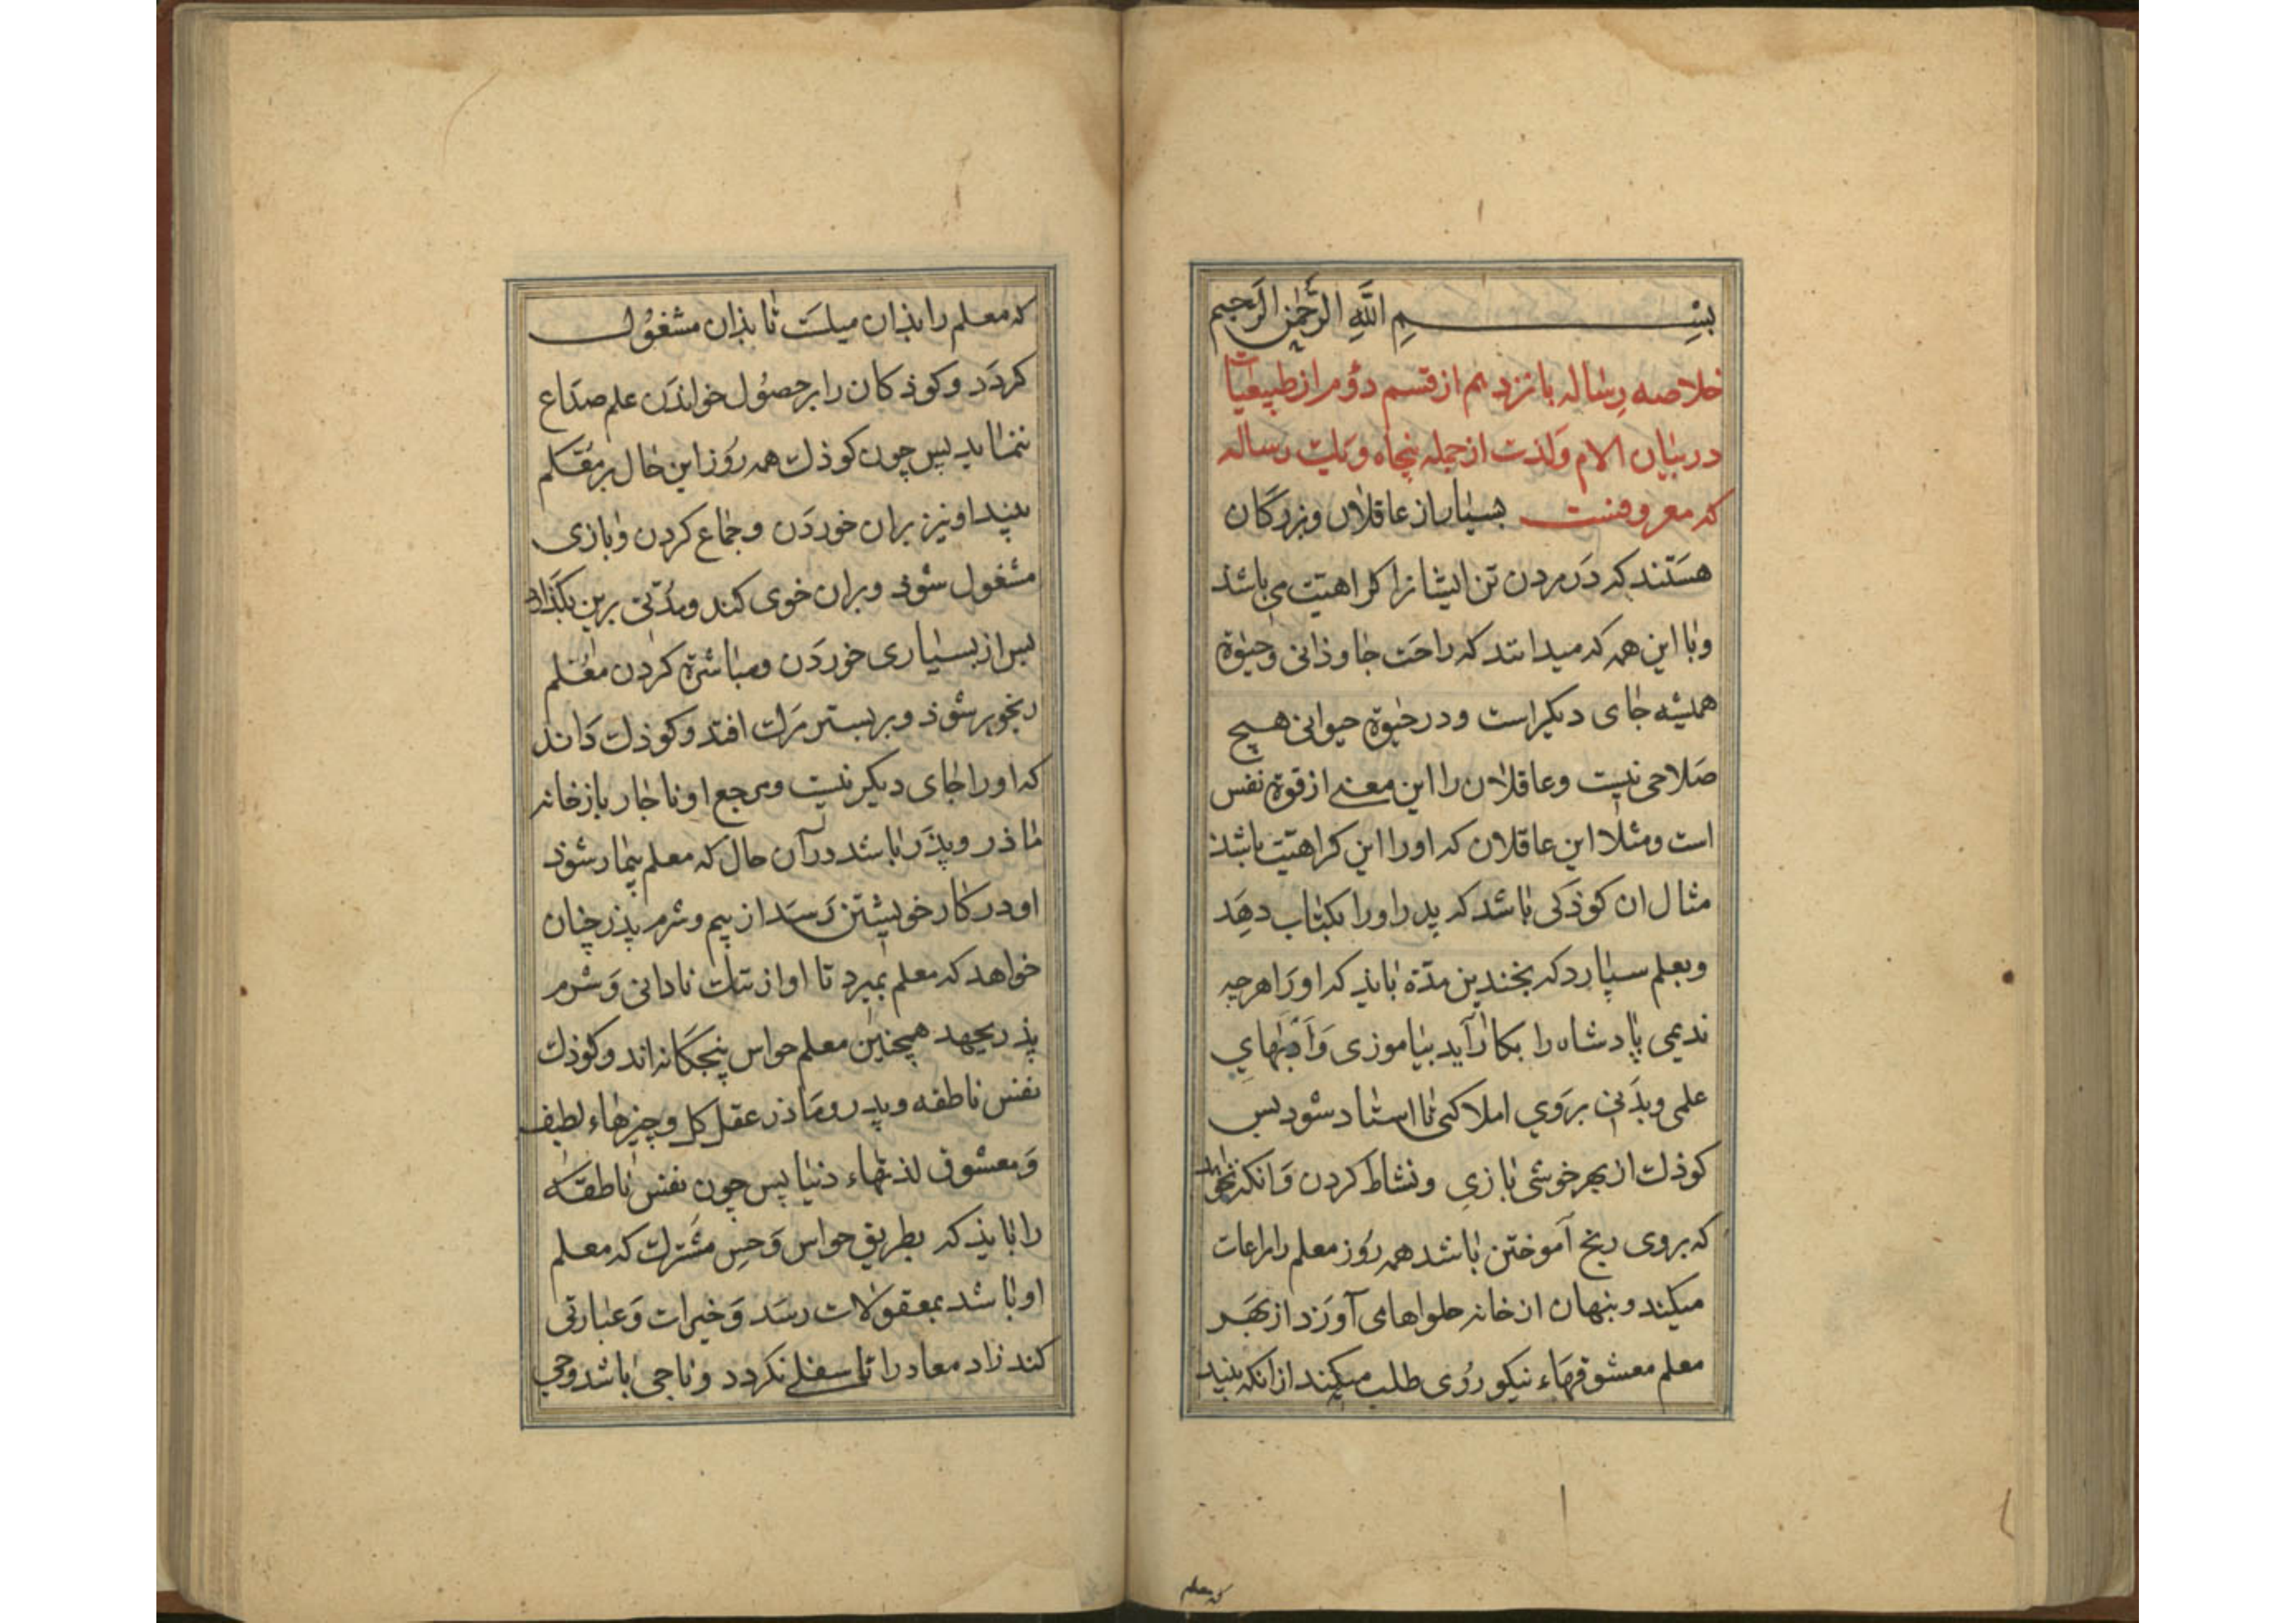 بسم الله الرحمن الرحیم
خلاصه رساله پانزدهم از قسم دوم از طبیعیات
در بیان الام و لذت از جمله پنجاه و یک رساله
که معروفست بسیار از عاقلان و بزرگان
هستند که در مردن تن ایشانرا کراهیت می باشد
و با این همه که میدانند که راحت جاوذانی و حیوة
همیشه جای دیگر است و در حیوة حیوانی هیچ
صلاحی نیست و عاقلان را این معنی از قوة نفس
است و مثلا این عاقلان که او را این کراهیت باشذ
مثال ان کوذکی باشد که پدر او را بکتاب دهد
و بعلم سپارد که بچندین مدة بایذ که او را هرچه
ندیمی پادشاه را بکار آید بیاموزی و ادبهای
علمی و بدنی بروی املا کنی تا استاد شود پس
کوذک از بهر خوشی بازی و نشاط کردن و انکه نخواهد
که بروی رنج آموختن باشد همه روز معلم را مراعات
میکند و پنهان از خانه حلواها می آورد از بهر
معلم معشوقهاء نیکو روی طلب میکند از انکه بیند
که معلم
که معلم را بذان میلست تا بذان مشغول
کردد و کوذکان را بر حصول خواندن علم صداع
ننماید پس چون کوذک همه روز این حال بر معلم
بیند او نیز بران خوردن و جماع کردن و بازی
مشغول شوذ و بران خوی کند و مدتی برین بکذارد
پس از بسیاری خوردن و مباشرة کردن معلم
رنجور شوذ و بر بستر مرک افتد و کوذک داند
که او را جای دیگر نیست و مرجع او ناجار باز خانه
ماذر و پذر باشد در آن حال که معلم بیمار شوذ
او در کار خویشتن رسد از بیم و شرم پذر چنان
خواهد که معلم بمیرد تا او از نادانی و شرم
پذر بجهد همچنین معلم حواس پنجگانه اند و کوذک
نفس ناطقه و پدر و ماذر عقل کل و چیزهاء لطیف
و معشوق لذتهاء دنیا پس چون نفس ناطقه
را بایذ که بطریق حواس و حس مشترک که معلم
او باشد بمعقولات رسد و خیرات و عبارتی
کند زاد معاد را تا سفلی نکردد و ناجی باشد و حی